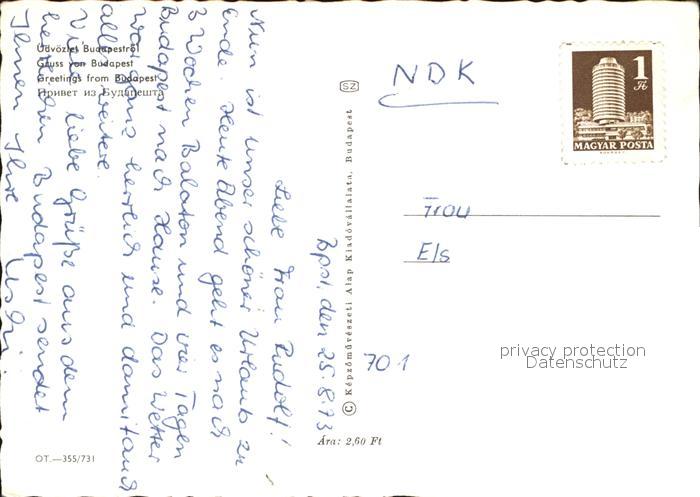 Üdvözlet Budapestről
Gruss von Budapest
Greetings from Budapest
Привет из Будапешта
Bpst, den 25.8.73
Liebe Frau Rudolf!
Nun ist unser schöner Urlaub zu
Ende. Heute Abend geht es nach
2 Wochen Balaton und vier Tagen
Budapest nach Hause. Das Wetter
war ganz herrlich und damit auch
alles weitere.
Viele liebe Grüße aus dem
herrlichen Budapest sendet
Ihnen Ihre
OT.—355/731
SZ
© Képzőművészeti Alap Kiadóvállalata, Budapest
Ára: 2,60 Ft
NDK
1
Ft
MAGYAR POSTA
Frau
Els
701
privacy protection
Datenschutz